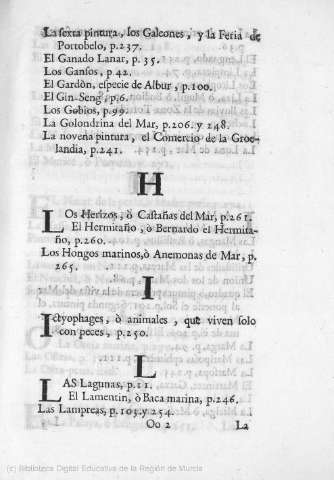 La sexta pintura, los Galeones, y la Feria de
Portobelo, p.237.
El Ganado Lanar, p. 35.
Los Gansos, p 42.
El Gardòn, especie de Albur, p.100.
El Gin-Seng, p.6.
Los Gobios, p.99.
La Golondrina del Mar, p.206. y 248.
La novena pintura, el Comercio de la Groe-
landia, p.241.
H
LOs Herizos, ò Castañas del Mar, p.261.
El Hermitaño, ò Bernardo el Hermita-
ño, p.260.
Los Hongos marinos, ò Anemonas de Mar, p.
265.
I
Ictyophages, ò animales, que viven solo
con peces, p.250.
L
LAS Lagunas, p.11.
El Lamentin, ò Baca marina, p.246.
Las Lampreas, p.103. y 254.
Oo 2 La
(c) Biblioteca Digital Educativa de la Región de Murcia